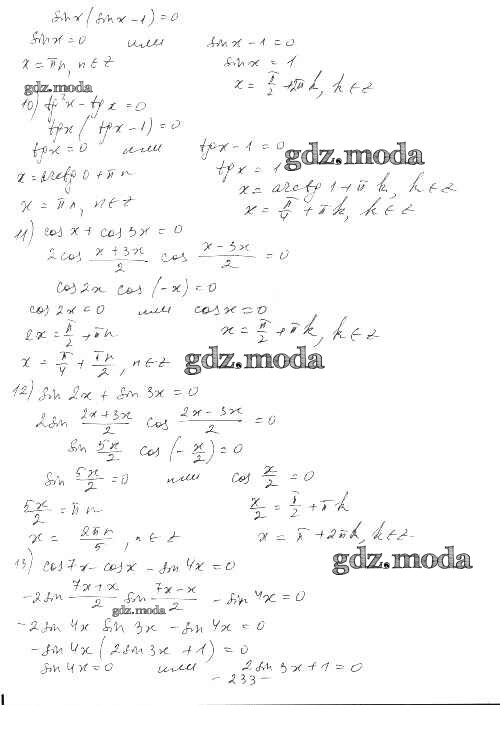 sinx(sinx-1)=0
sinx=0 или sinx-1=0
x=πn, n∈z sinx=1
gdz.moda x=π/2+2πk, k∈z
10) tg²x-tgx=0
tgx(tgx-1)=0
tgx=0 или tgx-1=0
gdz.moda
x=arctg0+πn tgx=1
x=πn, n∈z x=arctg1+πk, k∈z
x=π/4+πk, k∈z
11) cosx+cos3x=0
2cos (x+3x)/2 cos (x-3x)/2 =0
cos2x cos(-x)=0
cos2x=0 или cosx=0
2x=π/2+πn x=π/2+πk, k∈z
x=π/4+πn/2, n∈z gdz.moda
12) sin2x+sin3x=0
2sin (2x+3x)/2 cos (2x-3x)/2 =0
sin 5x/2 cos(-x/2)=0
sin 5x/2=0 или cos x/2=0
5x/2=πn x/2=π/2+πk
x=2πn/5, n∈z x=π+2πk, k∈z
gdz.moda
13) cos7x-cosx-sin4x=0
-2sin (7x+x)/2 sin (7x-x)/2 -sin4x=0
gdz.moda
-2sin4x sin3x-sin4x=0
-sin4x(2sin3x+1)=0
sin4x=0 или 2sin3x+1=0
-233-